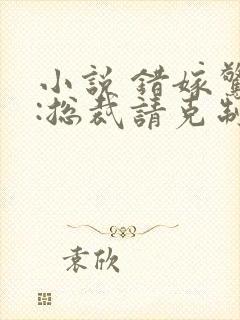 小說 錯嫁驚
:总裁請克制
袁欣